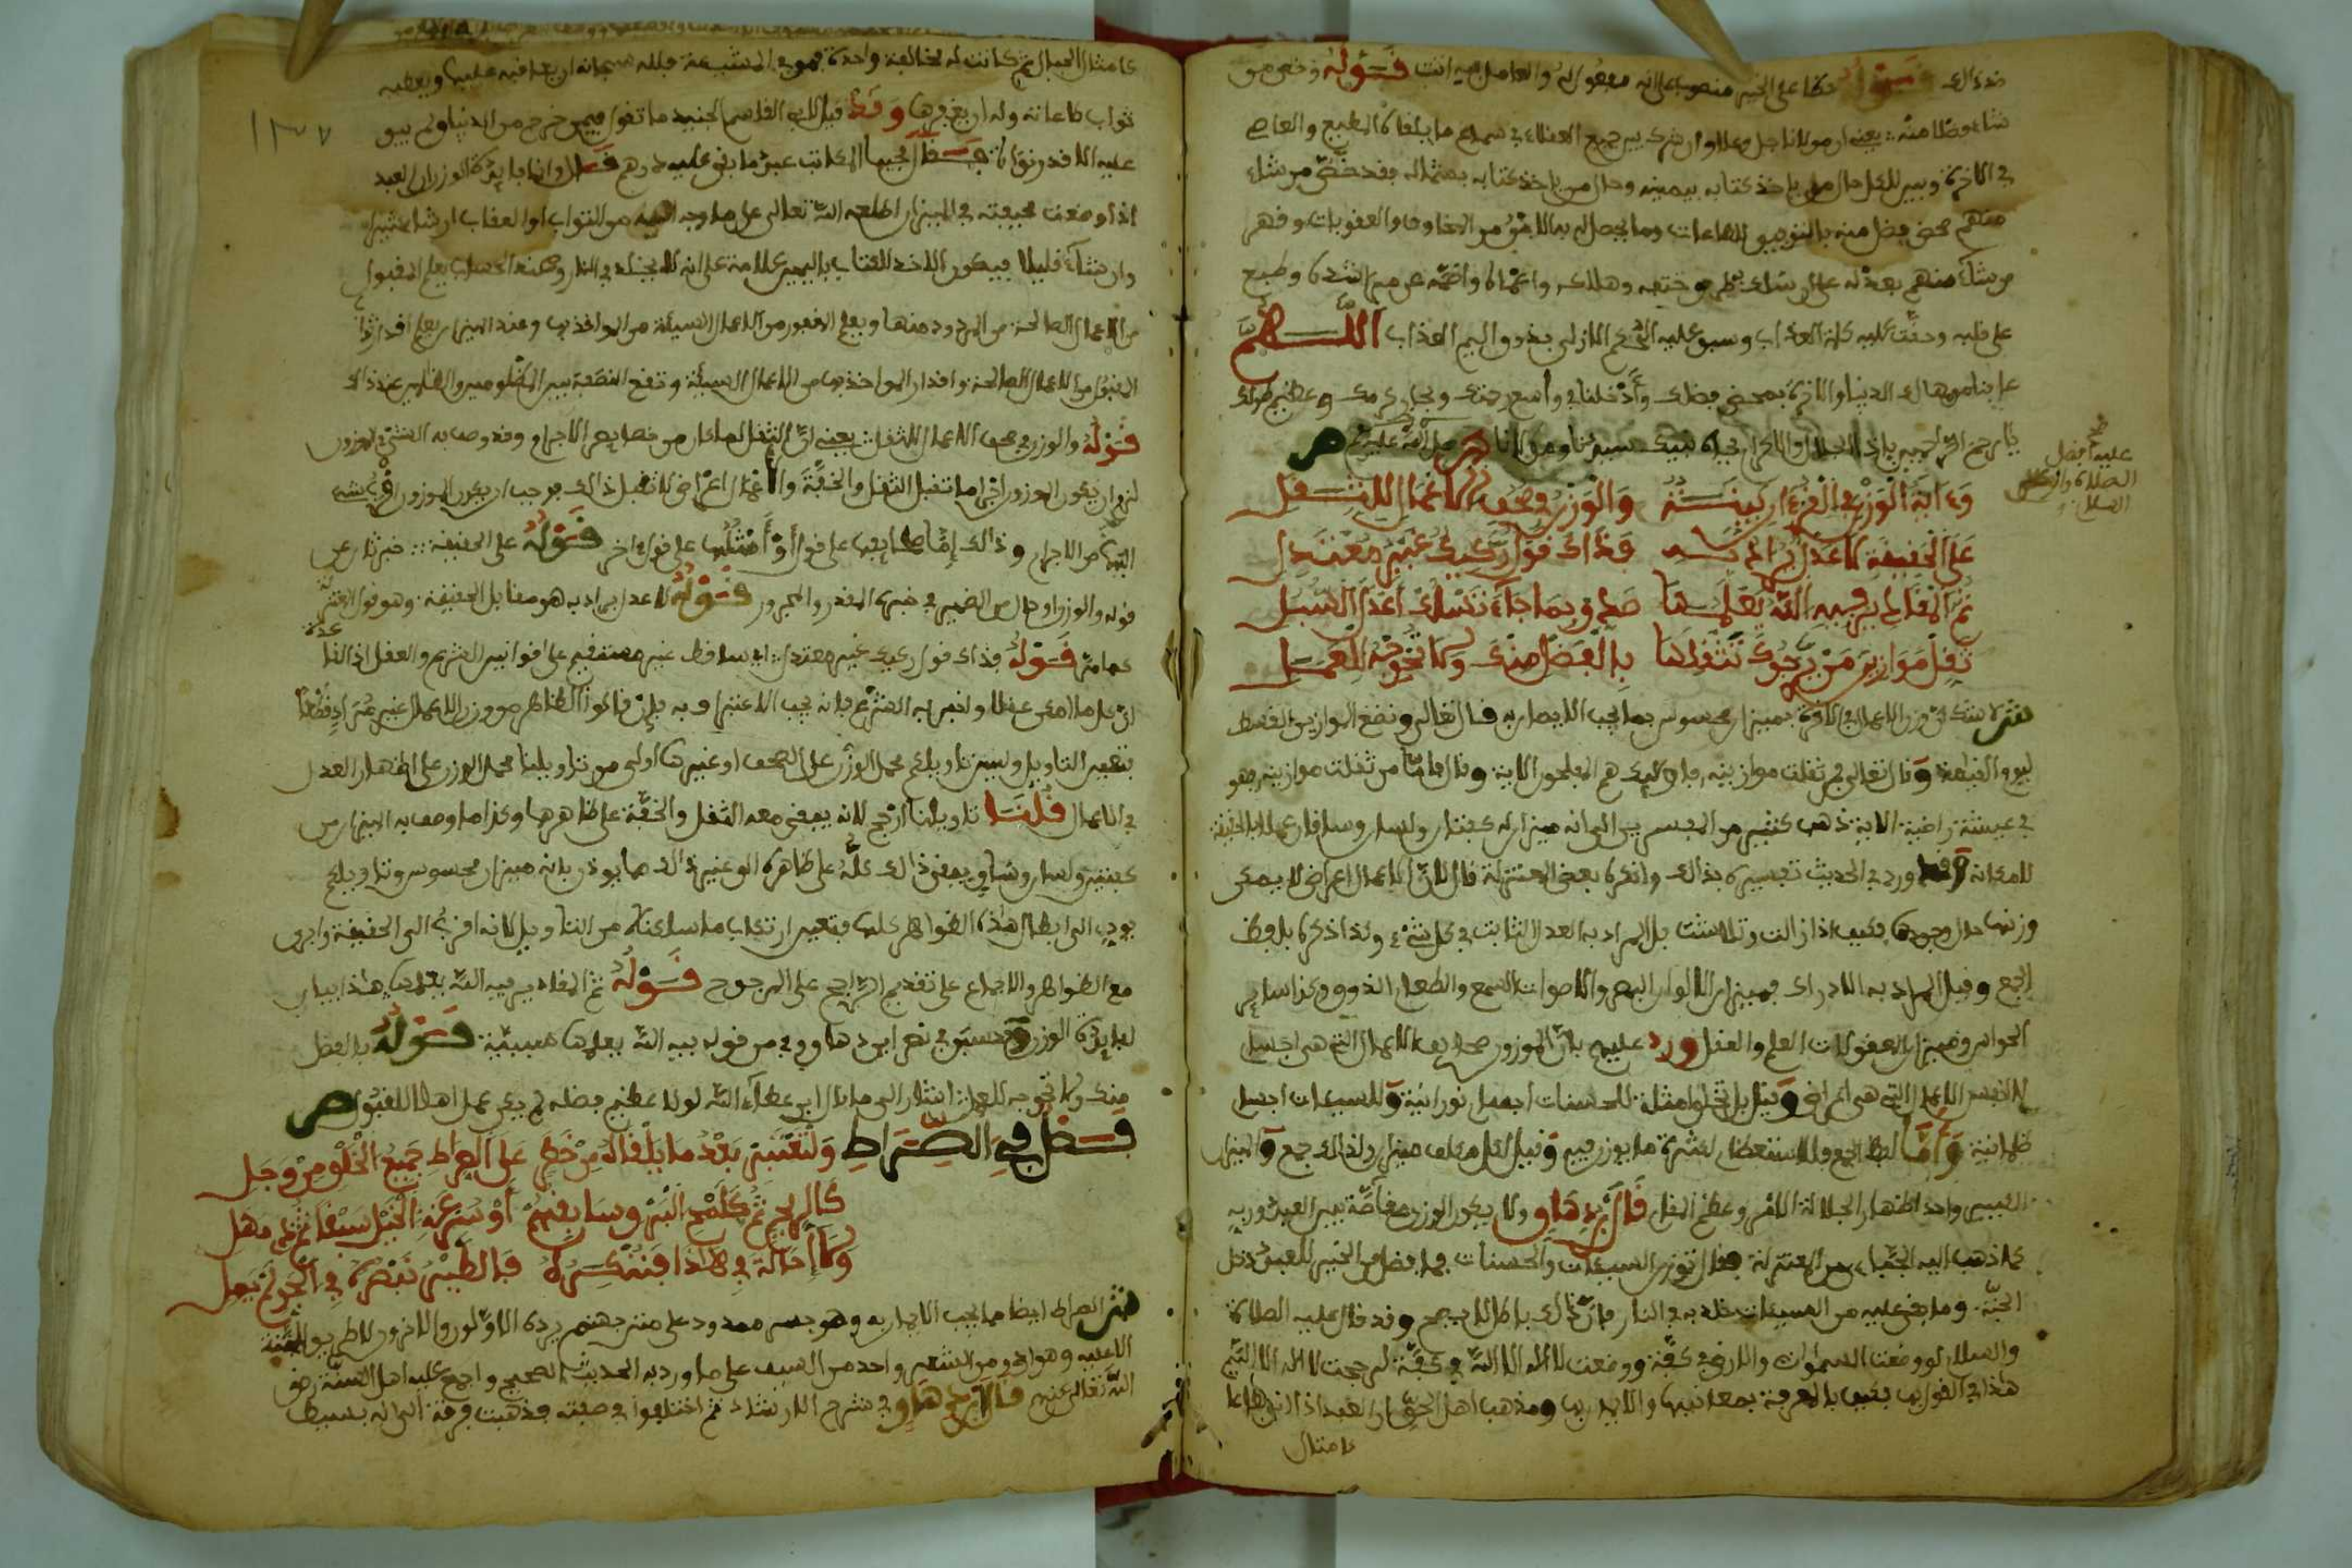 شاء فضلا منه يعني ان مولانا جل وعلا وان شرك بين جميع العقلاء في سماع ما يلقاه المطيع والعاصي
في الاخرة وبين للكل حال من ياخذ كتابه بيمينه وحال من ياخذ كتابه بشماله فقد خص من شاء
منهم بمحض فضل منه بالتوفيق للطاعات وما يحصل له به الامن من المخاوف والعقوبات وقهر
من شاء منهم بعدله على ان سلك طريق حتفه وهلاكه واعماه واصمه عن ميزان الهدى وطبع
على قلبه وحقت عليه كلمة العذاب وسبق عليه الحكم الازلي بذوق اليم العذاب اللهم
عافنا من مهالك الدنيا والاخرة بمحض فضلك وأدخلنا في واسع رحمتك وبحار كرمك وعظيم طولك
يا ارحم الراحمين ياذا الجلال والاكرام بجاه نبيك سيدنا ومولانا محمد صلى الله عليه وسلم ص
عليه افضل
الصلاة وازكى
السلام
وءاية الوزن في القرءان بينة والوزن في صحف الاعمال للثقل
على الحقيقة لا عدل يراد به فذاك قول ركيك غير معتدل
ثم المقادير فيه الله يعلمها صدق بما جاء تسلك أعدل السبل
ثقل موازين من يرجوك تثقلها بالفضل منك ولا تحوجه للعمل
ش لا شك ان وزن الاعمال في الاخرة بميزان محسوس مما يجب الايمان به قال تعالى ونضع الموازين القسط
ليوم القيامة وقال تعالى فمن ثقلت موازينه فاولئك هم المفلحون الاية وقال فاما من ثقلت موازينه فهو
في عيشة راضية الاية ذهب كثير من المفسرين الى انه ميزان له كفتان ولسان وساقان عملا بالحقيقة
لامكانه وقد ورد في الحديث تفسيره بذلك وانكره بعض المعتزلة قال لان الاعمال اعراض لا يمكن
وزنها حال وجودها فكيف اذا زالت وتلاشت بل المراد به العدل الثابت في كل شيء ولذا ذكره بلفظ
الجمع وقيل المراد به الادراك فميزان الالوان البصر والاصوات السمع والطعام الذوق وكذا ساير
الحواس وميزان المعقولات العلم والعقل ورد عليهم بان الموزون صحايف الاعمال التي هي اجسام
لا نفس الاعمال التي هي اعراض وقيل بل تجعل امثلة للحسنات اجسام نورانية وللسيئات اجسام
ظلمانية وأما لفظ الجمع فللاستعظام لكثرة ما يوزن فيه وقيل لكل مكلف ميزان ولذلك جمع والميزان
الكبير واحد اظهارا لجلالة الامر وعظم المقام قال ابن دهاق ولا يكون الوزن مقاصة بين العبد وربه
كما ذهب اليه الجباءي من المعتزلة فقال توزن السيئات والحسنات فما فضل من الخير للعبد دخل
الجنة وما بقي عليه من السيئات خلد به في النار فان ذلك باطل لا يصح وقد قال عليه الصلاة
والسلام لو وضعت السموات والارض في كفة ووضعت لا اله الا الله في كفة لرجحت لا اله الا الله
هذا في القول فكيف بالمعرفة بمعانيها والايمان بها ومذهب اهل الحق ان العبد اذا اتى بطاعات
كامثال
كامثال الجبال ثم كانت له مخالفة واحدة فهو في المشيئة فلله سبحانه ان يعاقبه عليها ويعطيه
ثواب طاعاته وله ان يغفرها وقد قيل لابي القاسم الجنيد ما تقول فيمن خرج من الدنيا ولم يبق
عليه الا قدر نواة فقال مجيبا المكاتب عبد ما بقي عليه درهم قال وانما فايدة الوزن ان العبد
اذا وضعت صحيفته في الميزان اطلعه الله تعالى على ما وجه اليه من الثواب او العقاب ان شاء كثيرا
وان شاء قليلا فيكون الاخذ للكتاب باليمين علامة على انه لا يخلد في النار وعند الحساب يعلم المقبول
من الاعمال الصالحة من المردود منها ويعلم المغفور من الاعمال السيئة من المواخذ بها وعند الميزان يعلم اقدار ثواب
المقبول من الاعمال الصالحة واقدار المواخذ بها من الاعمال السيئة وتقع النصفة بين المظلومين والظالمين عند ذلك
قوله والوزن في صحف الاعمال للثقل يعني ان الثقل لما كان من خصايص الاجرام وقد وصف به الشيء الموزون
لزم ان يكون الموزون اجراما تقبل الثقل والخفة والأعمال اعراض لا تقبل ذلك فوجب ان يكون الموزون
من الاجرام وذلك إما صحايفها على قول أو أمثلتها على قول اخر قوله على الحقيقة خبر ثان عن
قوله والوزن او حال من الضمير في خبره المقدر والمجرور قوله لا عدل يراد به هو مقابل الحقيقة وهو قول المعتزلة
كما مر قوله فذاك قول ركيك غير معتدل اي ساقط غير مستقيم على قوانين الشرع والعقل اذ القاعدة
ان كل ما امكن عقلا واخبر به الشرع فانه يجب الاعتراف به فان قالوا الظاهر هو وزن الاعمال غير مراد قطعا
فتعين التاويل وليس تاويلكم بحمل الوزن على الصحف او غيرها اولى من تاويلنا بحمل الوزن على اظهار العدل
في الاعمال قلنا تاويلنا ارجح لانه يبقى معه الثقل والخفة على ظاهرها وكذا ما وصف به الميزان من
كفتين ولسان وساق يبقى ذلك كله على ظاهره الى غير ذلك مما يوذن بانه ميزان محسوس وتاويلكم
يودي الى ابطال هذه الظواهر كلها فتعين ارتكاب ما سلكناه من التاويل لانه اقرب الى الحقيقة واجرى
مع الظواهر والاجماع على تقديم الراجح على المرجوح قوله ثم المقادير فيه الله يعلمها هذا بيان
لفايدة الوزن وحسبك في نص ابن دهاق وفي من قوله فيه الله يعلمها سببية قوله بالفضل
منك ولا تحوجه للعمل اشار الى ما قال ابن عطاء الله لولا عظيم فضله لم يكن عمل اهلا للقبول ص
فصل في الصراط ولتعتبر بعد ما يلقاه من خطر على الصراط جميع الخلق من وجل
كالريح ثم كلمح البر وسابقهم أو سرعة الخيل سبقا ثم ذي مهل
ولا إحالة في هذا فتنكره فالطير تبصره في الجو لم يمل
ش الصراط ايضا مما يجب الايمان به وهو جسر ممدود على متن جهنم يرده الاولون والاخرون لا طريق للجنة
الا عليه وهو ادق من الشعر واحد من السيف على ما ورد به الحديث الصحيح واجمع عليه اهل السنة رضي
الله تعالى عنهم قال ابن دهاق في شرح الارشاد ثم اختلفوا في صفته فذهبت فرقة الى انه بسيط